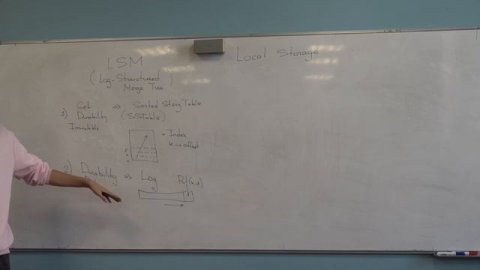 LSM
Local Storage
(Log-Structured
Merge Tree)
Get => Sorted String Table
Durability (SSTable)
Immutable
Index
2) Durability => Log Put(k,v)